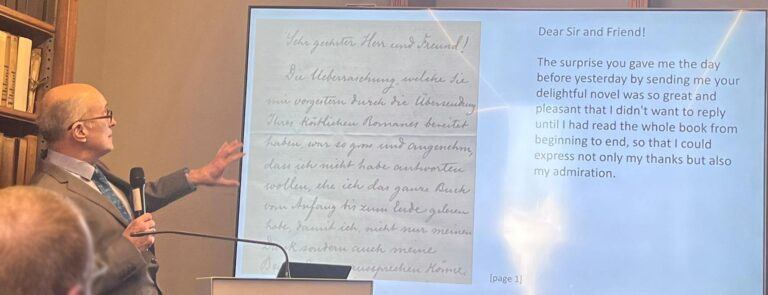 Sehr geehrter Herr und Freund!
Die Ueberraschung, welche Sie
mir vorgestern durch die Übersendung
Ihres köstlichen Romanes bereitet
haben, war so gross und angenehm,
dass ich nicht habe antworten
wollen, ehe ich das ganze Buch
vom Anfang bis zum Ende gelesen
habe, damit ich, nicht nur meinen
Dank sondern auch meine
aussprechen könne.
Dear Sir and Friend!
The surprise you gave me the day
before yesterday by sending me your
delightful novel was so great and
pleasant that I didn't want to reply
until I had read the whole book from
beginning to end, so that I could
express not only my thanks but also
my admiration.
[page 1]